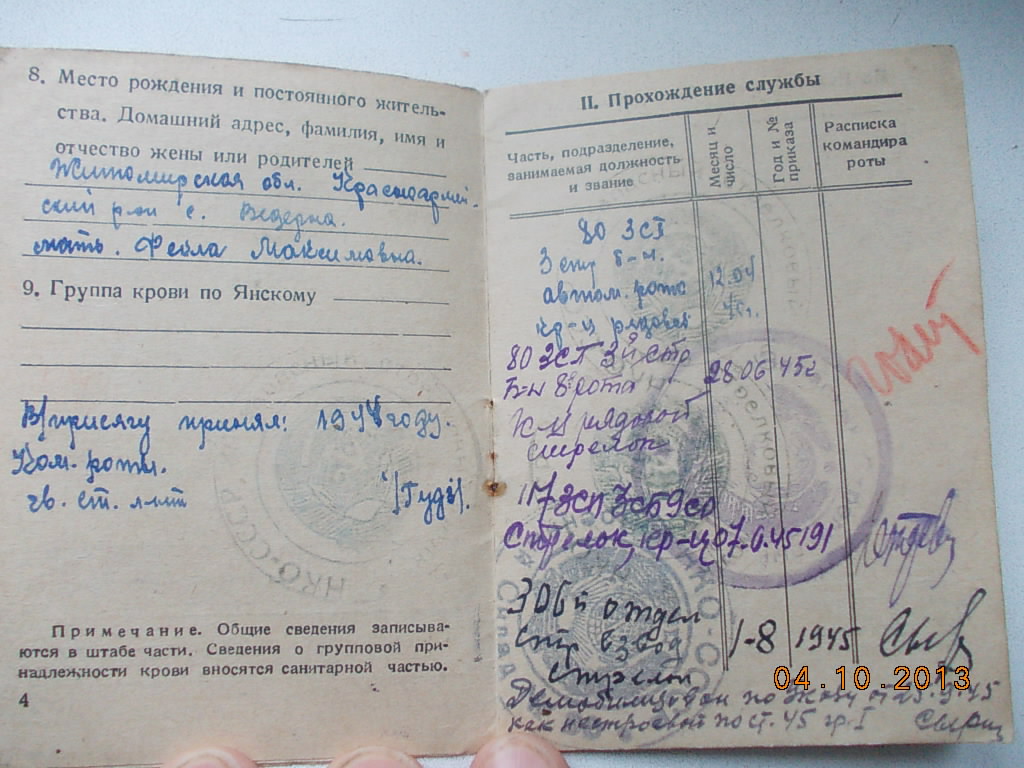 8. Место рождения и постоянного житель-
ства. Домашний адрес, фамилия, имя и
отчество жены или родителей
Житомирская обл. Красноармей-
ский р-он с.
мать. Фекла Максимовна.
9. Группа крови по Янскому
В/присягу принял: 1944 году.
Ком. роты.
гв. ст. л-нт /Гудзь/.
Примечание. Общие сведения записыва-
ются в штабе части. Сведения о групповой при-
надлежности крови вносятся санитарной частью.
4
II. Прохождение службы
Часть, подразделение,
занимаемая должность
и звание
Месяц и
число
Год и №
приказа
Расписка
командира
роты
80 ЗСП
3 стр б-н.
автом. рота 12.04
кр-ц рядовой
80 ЗСП 3й стр
б-н 8 рота 28.06 45г
рядовой
стрелок
117 ЗСП 7СБ 9СР
Стрелок, кр-ц 07. 45 191
306й отдел
стр взвод 1-8 1945
стрелок
Демобилизован по от 25.9.45
как нестроевой по ст. 45 гр. I
НКО-СССР
НКО-СССР
04.10.2013